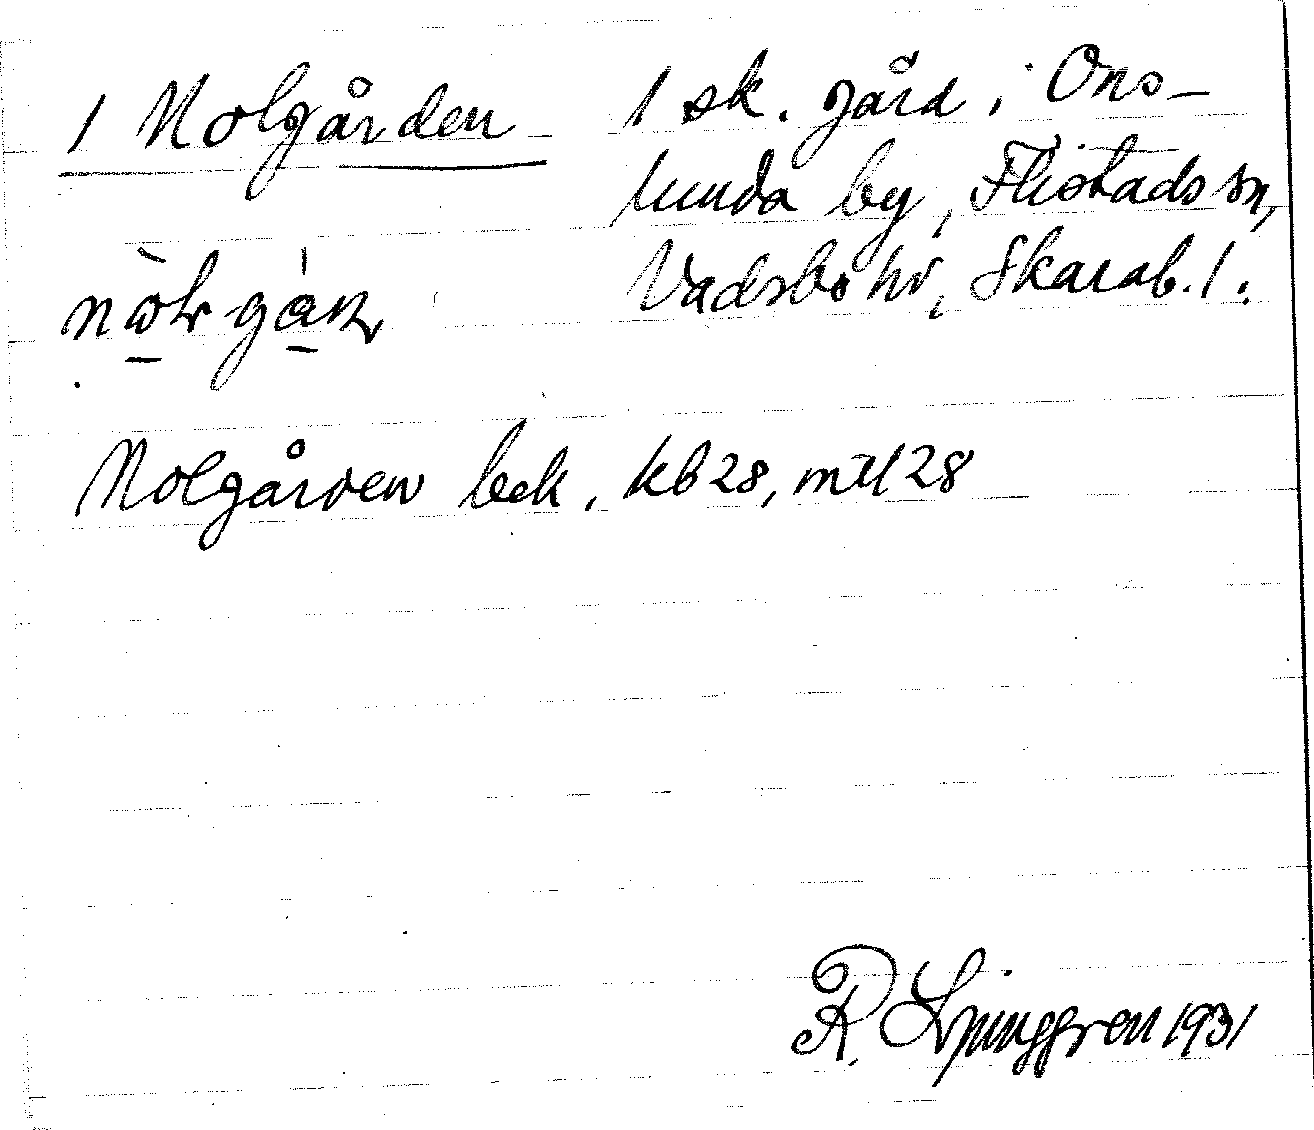 1 Nolgården
1 sk. gård i Ons-
lunda by, Flistads sn,
Vadsbo hd, Skarab. l.
Nolgården bek. kb 28, mtl 28
R. Ljunggren 1931